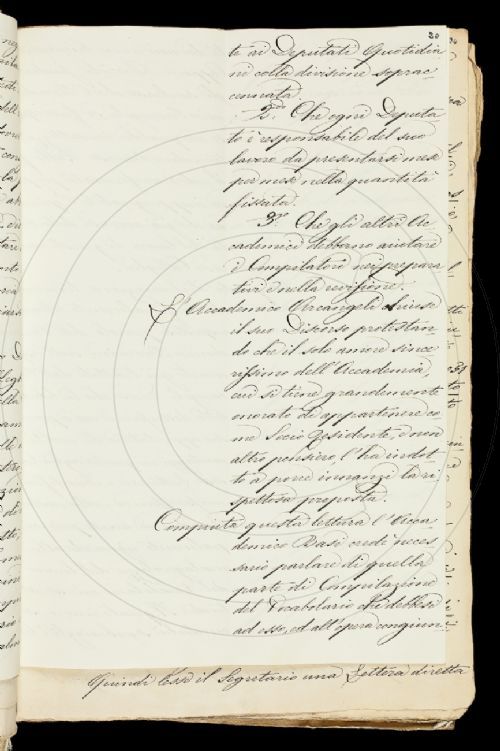 20
te ai Deputati Quotidia
ni colla divisione soprac
cennata.
2.do Che ogni Deputa
to è responsabile del suo
lavoro da presentarsi mese
per mese nella quantità
fissata.
3.o Che gli altri Ac
cademici debbano aiutare
i Compilatori nei prepara
tivi e nella revisione.
L'Accademico Arcangeli chiuse
il suo Discorso protestan
do che il solo amore since
rissimo dell'Accademia,
cui si tiene grandemente
onorato di appartenere co
me Socio Residente, e non
altro pensiero l'ha indot
to a porre innanzi la ri
spettosa proposta.
Compiuta questa lettura l'Acca
demico Basi credè neces
sario parlare di quella
parte di Compilazione
del Vocabolario che debbesi
ad esso, ed all'opera congiun
Quindi lesse il Segretario una Lettera diretta